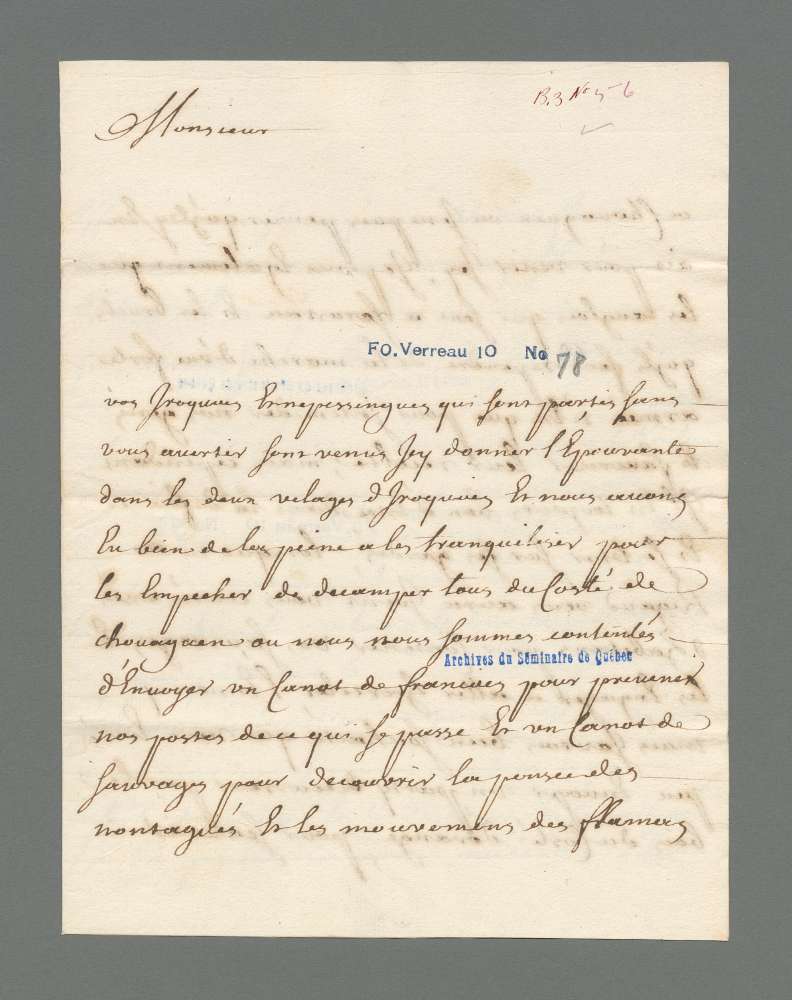 B.3 No 5-6
Monsieur
FO. Verreau 10 No 78
vos Jroquois Et nepessingues qui sont partis sans
vous avertir sont venus Jcy donner l'Epouvante
dans les deux vilages d'Jroquois Et nous avons
Eu bien de la peine a les tranquiliser pour
les Empecher de decamper tous du Costé de
chouaguen ou nous nous sommes contentés
Archives du Séminaire de Québec
d'Envoyer un Canot de francois pour prevenir
nos postes de ce qui se passe Et un Canot de
sauvages pour decouvrir la pensée des
nontagués Et les mouvemens des fflamans